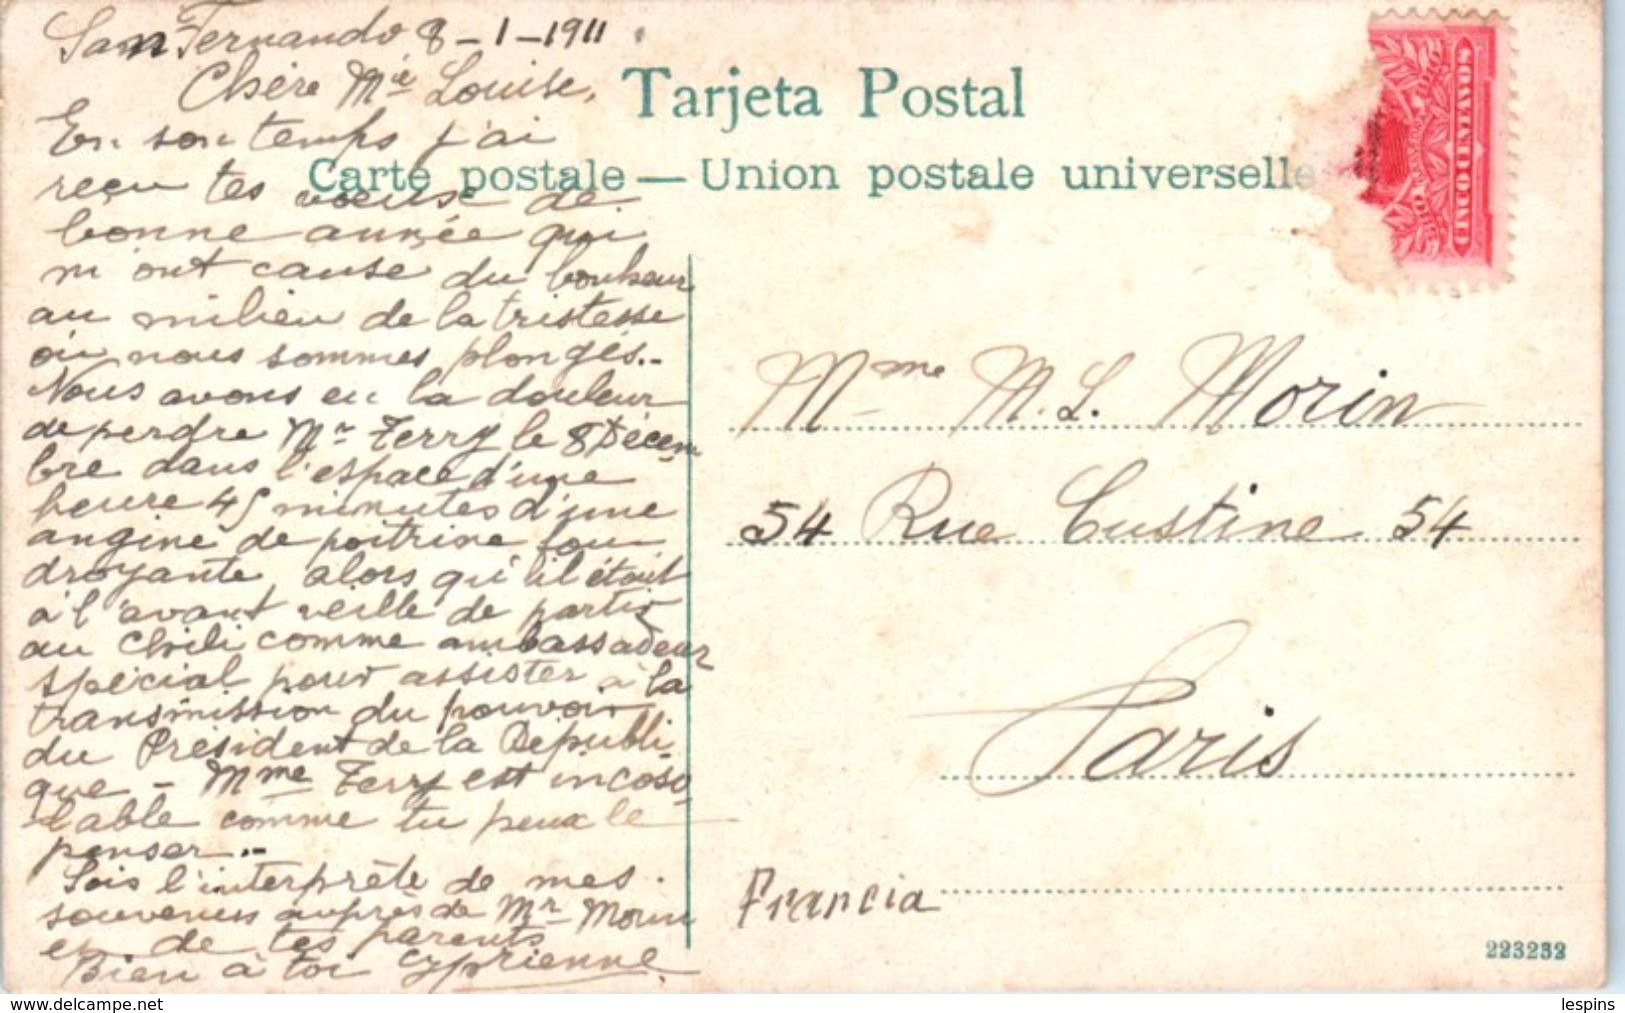 San Fernando 8-1-1911
Chère Mie Louise,
En son temps j'ai
reçu tes voeux de
bonne année qui
m'ont causé du bonheur
au milieu de la tristesse
où nous sommes plongés.-
Nous avons eu la douleur
de perdre Mr Terry le 8 Décem
bre dans l'espace d'une
heure 45 minutes d'une
angine de poitrine fou
droyante, alors qu'il était
à l'avant veille de partir
au Chili comme ambassadeur
spécial pour assister à la
transmission du pouvoir
du Président de la Républi
que - Mme Terry est incoso
lable comme tu peux le
penser.-
Sois l'interprète de mes
souvenirs auprès de Mr Morin
et de tes parents
Bien à toi Cyprienne
Tarjeta Postal
Carte postale — Union postale universelle
CINCO CENTAVOS
Mme M. L. Morin
54 Rue Custine 54
Paris
Francia
223232
lespins